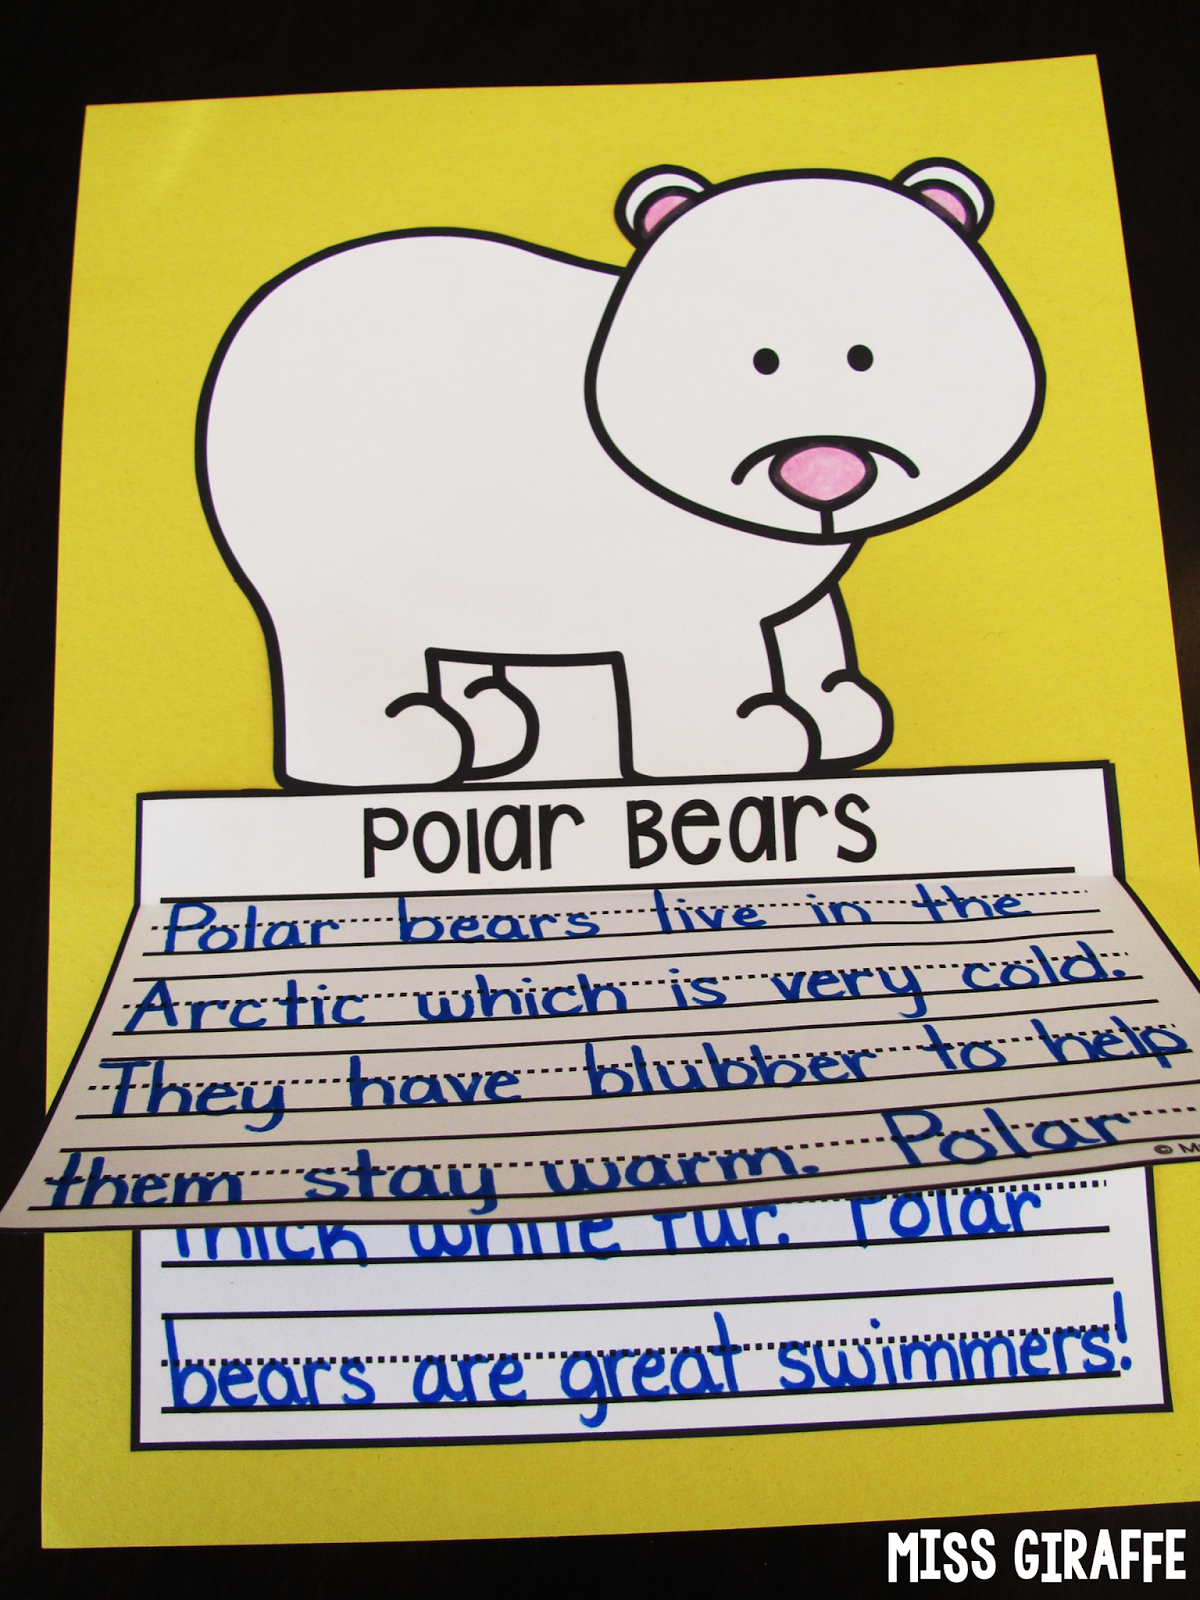 Polar Bears
Polar bears live in the
Arctic which is very cold.
They have blubber to help
them stay warm. Polar
thick white fur. Polar
bears are great swimmers!
MISS GIRAFFE